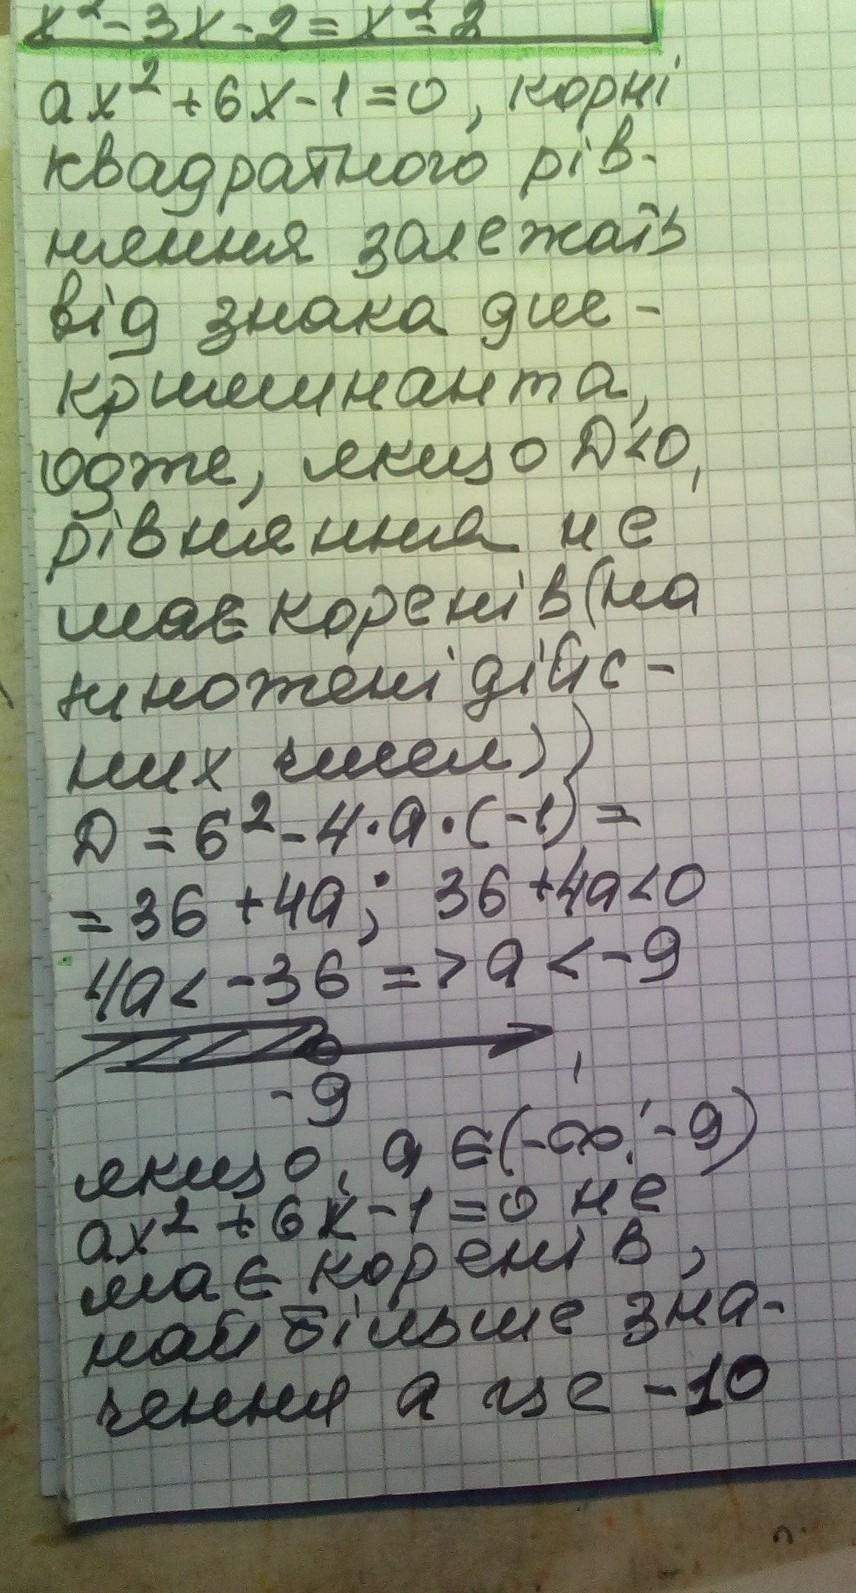 x² - 3x - 2 = x² - 2
ax² + 6x - 1 = 0, корні
квадратного рів-
няння залежать
від знака дис-
кримінанта,
отже, якщо D < 0,
рівняння не
має коренів (на
множені дійс-
них чисел)
D = 6² - 4·a·(-1) =
= 36 + 4a; 36 + 4a < 0
4a < -36 => a < -9
-9
якщо, a ∈ (-∞; -9)
ax² + 6x - 1 = 0 не
має коренів,
найбільше зна-
чення a це -10